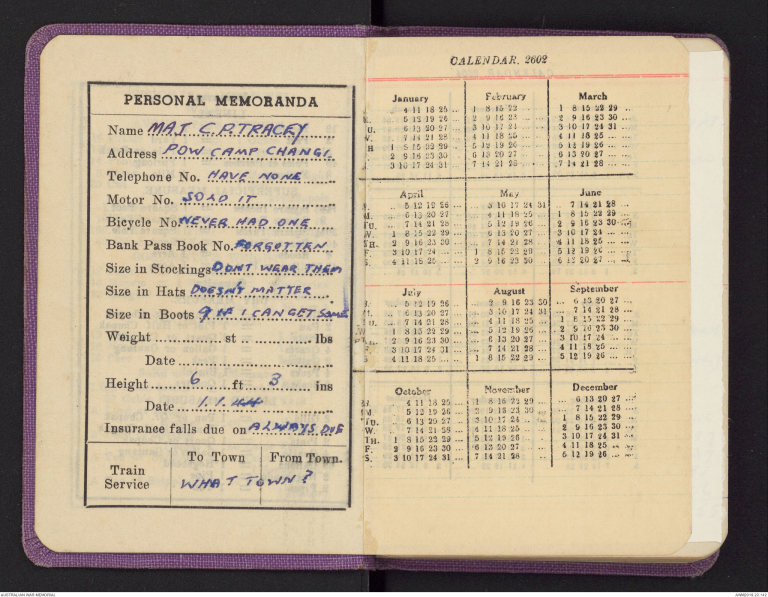 PERSONAL MEMORANDA
Name MAJ C.P. TRACEY
Address POW CAMP CHANGI.
Telephone No. HAVE NONE
Motor No. SOLD IT
Bicycle No. NEVER HAD ONE
Bank Pass Book No. FORGOTTEN
Size in Stockings DONT WEAR THEM
Size in Hats DOESN'T MATTER
Size in Boots 9 IF I CAN GET SOME
Weight ... st ... lbs
Date
Height 6 ft 3 ins
Date 1.1.44
Insurance falls due on ALWAYS DUE
To Town From Town.
Train Service WHAT TOWN?
CALENDAR, 2602
January February March
... 4 11 18 25 ... 1 8 15 22 ... 1 8 15 22 29 ...
... 5 12 19 26 ... 2 9 16 23 ... 2 9 16 23 30 ...
TU. ... 6 13 20 27 ... 3 10 17 24 ... 3 10 17 24 31 ...
W. ... 7 14 21 28 ... 4 11 18 25 ... 4 11 18 25 ...
1 8 15 22 29 ... 5 12 19 26 ... 5 12 19 26 ...
2 9 16 23 30 ... 6 13 20 27 ... 6 13 20 27 ...
3 10 17 24 31 ... 7 14 21 28 ... 7 14 21 28 ...
April May June
... 5 12 19 26 ... 3 10 17 24 31 ... 7 14 21 28 ...
M. ... 6 13 20 27 ... 4 11 18 25 ... 1 8 15 22 29 ...
TU. ... 7 14 21 28 ... 5 12 19 26 ... 2 9 16 23 30 ...
W. 1 8 15 22 29 ... 6 13 20 27 ... 3 10 17 24 ...
TH. 2 9 16 23 30 ... 7 14 21 28 ... 4 11 18 25 ...
F. 3 10 17 24 ... 1 8 15 22 29 ... 5 12 19 26 ...
S. 4 11 18 25 ... 2 9 16 23 30 ... 6 13 20 27 ...
July August September
... 5 12 19 26 ... 2 9 16 23 30 ... 6 13 20 27 ...
M. ... 6 13 20 27 ... 3 10 17 24 31 ... 7 14 21 28 ...
TU. ... 7 14 21 28 ... 4 11 18 25 ... 1 8 15 22 29 ...
W 1 8 15 22 29 ... 5 12 19 26 ... 2 9 16 23 30 ...
2 9 16 23 30 ... 6 13 20 27 ... 3 10 17 24 ...
F. 3 10 17 24 31 ... 7 14 21 28 ... 4 11 18 25 ...
S. 4 11 18 25 ... 1 8 15 22 29 ... 5 12 19 26 ...
October November December
... 4 11 18 25 ... 1 8 15 22 29 ... 6 13 20 27 ...
M ... 5 12 19 26 ... 2 9 16 23 30 ... 7 14 21 28 ...
TU. ... 6 13 20 27 ... 3 10 17 24 ... 1 8 15 22 29 ...
W. ... 7 14 21 28 ... 4 11 18 25 ... 2 9 16 23 30 ...
TH. 1 8 15 22 29 ... 5 12 19 26 ... 3 10 17 24 31 ...
F. 2 9 16 23 30 ... 6 13 20 27 ... 4 11 18 25 ...
S. 3 10 17 24 31 ... 7 14 21 28 ... 5 12 19 26 ...
AUSTRALIAN WAR MEMORIAL